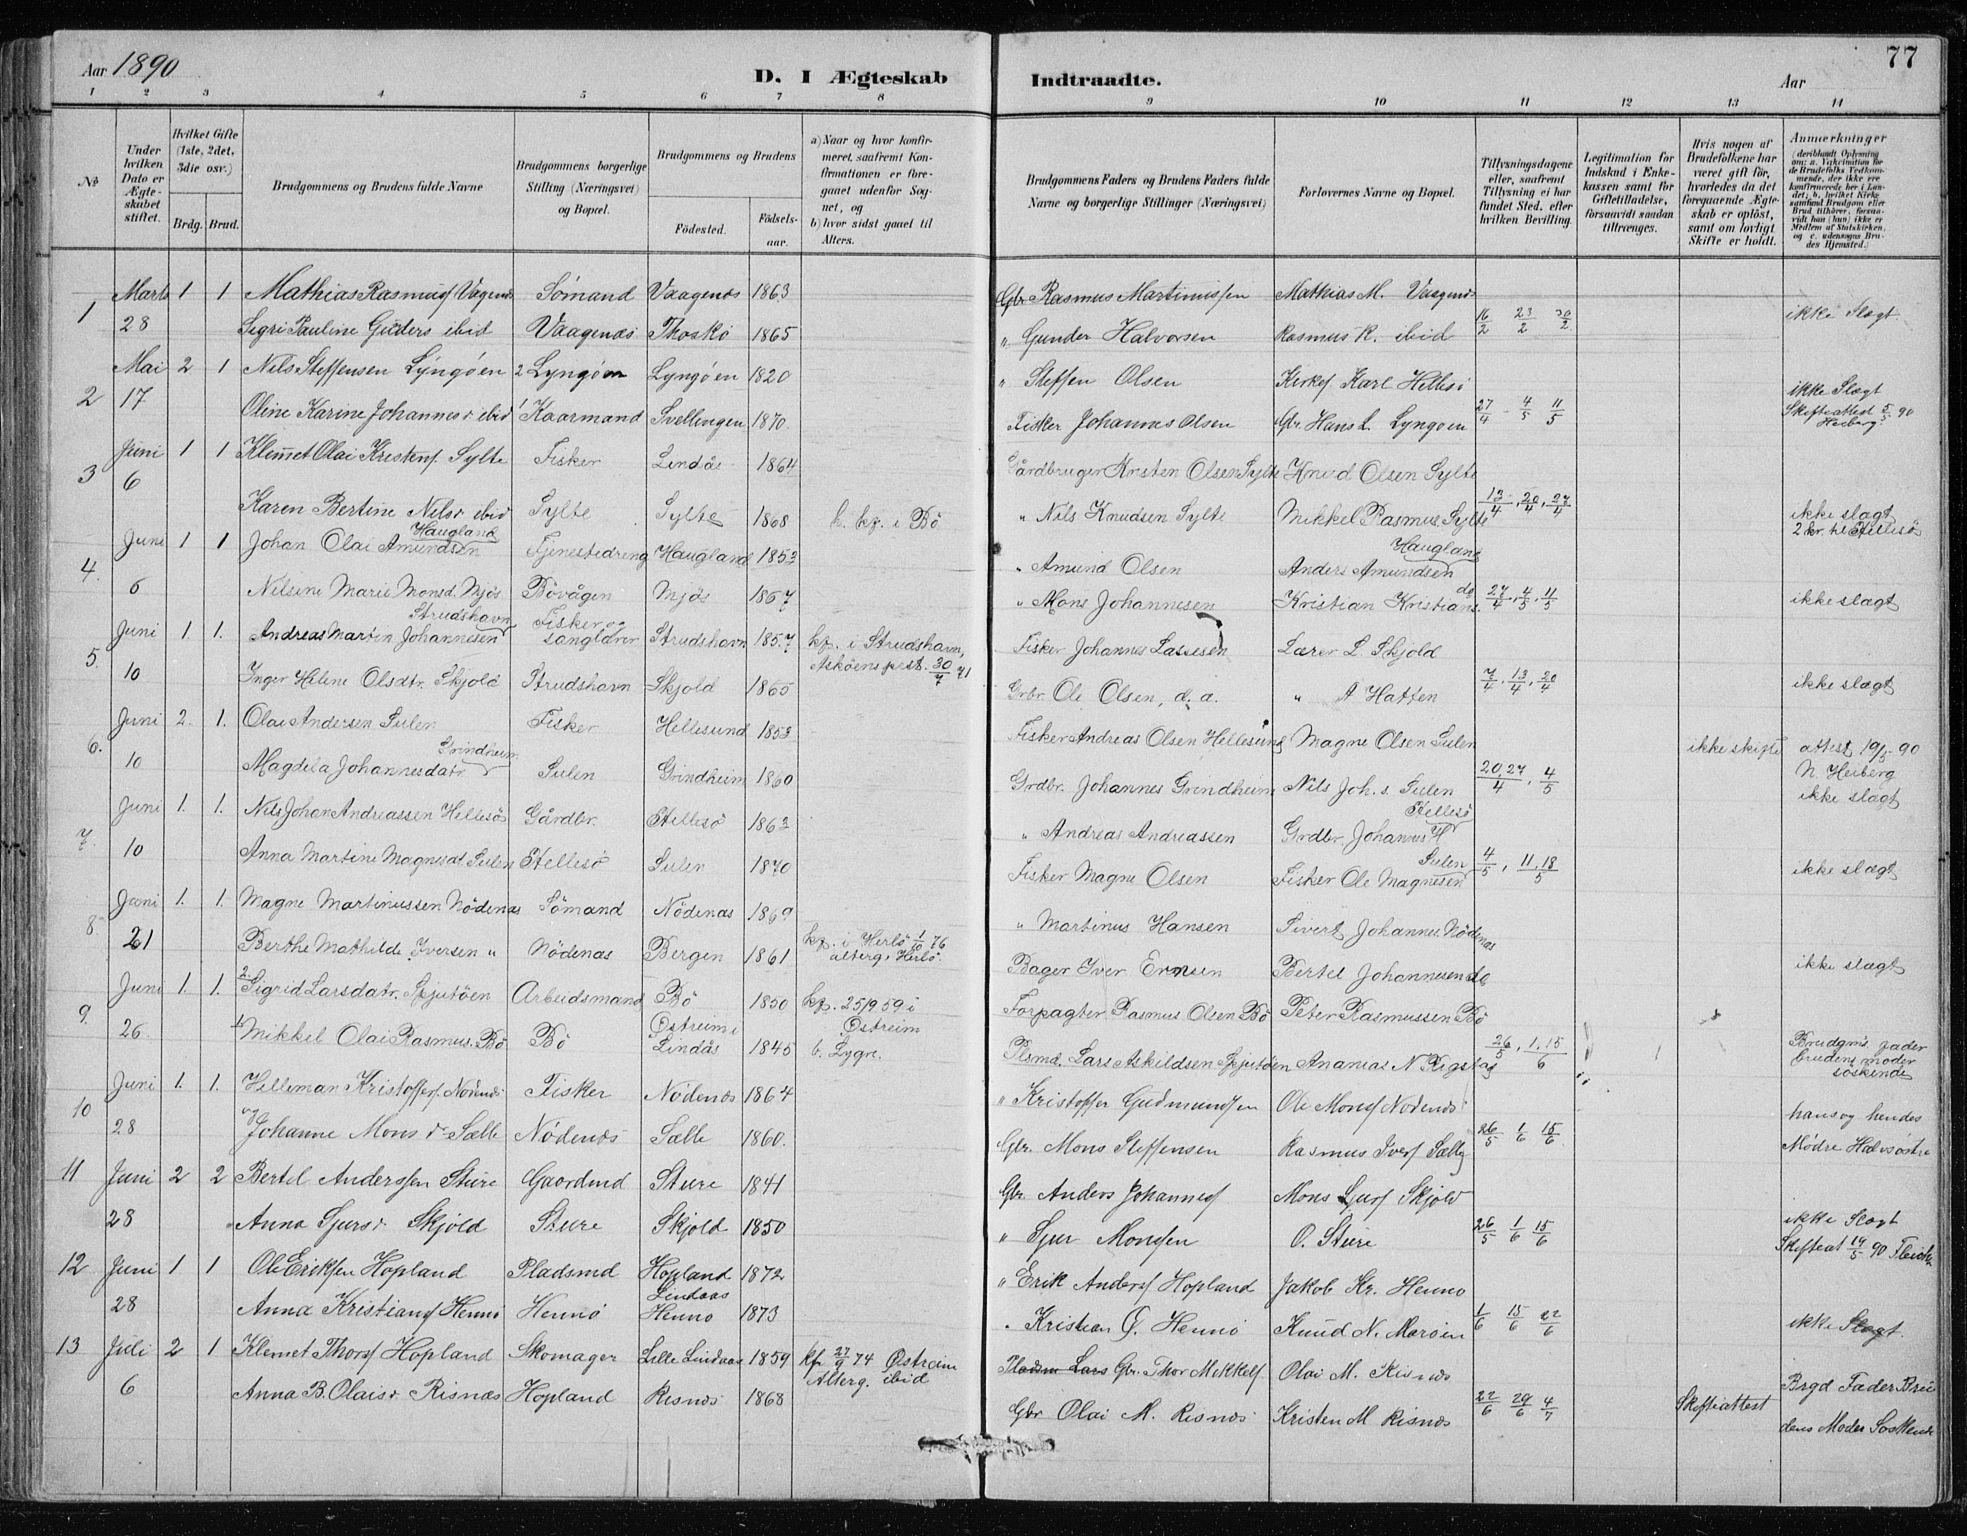 Aar 1890
D. I Ægteskab Indtraadte.
Aar 77
1 2 3 4 5 6 7 8 9 10 11 12 13 14
No
Under hvilken Dato er Ægteskabet stiftet.
Hvilket Gifte (1ste, 2det, 3die osv.)
Brdg. Brud.
Brudgommens og Brudens fulde Navne
Brudgommens borgerlige Stilling (Næringsvei) og Bopæl.
Brudgommens og Brudens
Födested. Födselsaar.
a) Naar og hvor konfirmeret, saafremt Konfirmationen er foregaaet udenfor Sognet, og
b) hvor sidst gaaet til Alters.
Brudgommens Faders og Brudens Faders fulde Navne og borgerlige Stillinger (Næringsvei)
Forlovernes Navne og Bopæl.
Tillysningsdagene eller, saafremt Tillysning ei har fundet Sted, efter hvilken Bevilling.
Legitimation for Indskud i Enkekassen samt for Giftetilladelse, forsaavidt saadan tiltrænges.
Hvis nogen af Brudefolkene har været gift før, hvorledes da det foregaaende Ægteskab er oplöst, samt om lovligt Skifte er holdt.
Anmærkninger
1 Marts 1 1 Mathias Rasmusf Vagenæs Sömand Vaagenæs 1863 Gbr Rasmus Martinussen Mathias M. Vaagenæs
28 Sigri Pauline Gunders ibid Vaagenæs Thoskö 1865 " Gunder Halvorsen Rasmus R. ibid 16/2 23/2 30/2 ikke Slægt.
2 Mai 2 1 Nils Steffensen Lyngöen 2 Lyngöen Lyngöen 1820 " Steffen Olsen Kirkes Karl Hellesö
17 Oline Karine Johannesd ibid 1 Kaarmand Svellingen 1870. Fisker Johannes Olsen Gbr Hans L. Lyngöen 27/4 - 4/5 11/5 ikke Slægt Skifteattest 5/5 90 Heiberg
3 Juni 1 1 Klemet Olai Kristens. Sylte Fisker Lindås 1864 Gårdbruger Kristen Olsen Sylte Knud Olsen Sylte
6 Karen Bertine Nilsd ibid Sylte Sylte 1868 h. kf. i Bö " Nils Knudsen Sylte Mikkel Rasmus. Sylte 13/4, 20/4, 27/4 ikke slægt 2 kr. til Hellesö
4. Juni 1 1 Johan Olai Amundsen Haugland Tjenestedreng Haugland 1853 " Amund Olsen Anders Amundsen Haugland
6 Nilsine Marie Monsd. Mjös Bövågen Mjös 1867 " Mons Johannesen Kristian Kristians. do 27/4, 4/5, 11/5 ikke slægt
5. Juni 1 1. Andreas Martin Johannesen Strudshavn Fisker og sanglærer Strudshavn 1857 kf. i Strudshavn, Askøens prst. 30/7 71 Fisker Johannes Lassesen Lærer L. Skjold
10 Inger Helene Olsdtr. Skjold Strudshavn Skjold 1865 Grbr. Ole Olsen, d. a. " A Hatten 7/4, 13/4, 20/4 ikke slægt
6. Juni 2. 1. Olai Andersen Sulen Fisker Hellesund 1853 Fisker Andreas Olsen Hellesund Magne Olsen Sulen ikke skifte attest 19/5 90 N. Heiberg
10 Magdela Johannesdatr Grindheim Sulen Grindheim 1860 Grdbr. Johannes Grindheim Nils Joh. s. Sulen 20, 27/4, 4/5 ikke slægt
7. Juni 1. 1. Nils Johan Andreassen Hellesö Gårdbr. Hellesö 1863 " Andreas Andreassen Grdbr Johannes H Hellesö
10 Anna Martine Magnesdt Sulen Hellesö Sulen 1870 Fisker Magne Olsen Fisker Ole Magnesen Sulen 4/5, 11, 18/5 ikke slægt
8 Juni 1. 1. Magne Martinussen Nödenæs Sömand Nödenæs 1869 " Martinus Hansen Sivert Johannes. Nödenæs
21 Berthe Mathilde Iversen " Nödenæs Bergen 1861 kf. i Herlö 1/10 76 alterg. i Herlö. Bager Iver Ernsen Bertel Johannesen do ikke slægt
9. Juni 1. 1. 2. Sigrid Larsdatr. Spjutöen Arbeidsmand Bö 1850 kf. 25/9 59 i Østreim Forpagter Rasmus Olsen Bö Peter Rasmussen Bö
26. 1. Mikkel Olai Rasmus. Bö Bö Østreim i Lindås 1845 b. Lygre. Plsmd. Lars Askildsen Spjutöen Ananias N Rigstad 26/5, 1, 15/6 Brudgms. fader brudens moder söskende
10 Juni 1. 1. Helleman Kristoffers. Nödnæs Fisker Nödenæs 1864 " Kristoffer Gudmundsen Ole Mons Nödenæs
28 Johanne Monsd Sælle Nödenæs Sælle 1860. Gbr. Mons Steffensen Rasmus Ivers Sælle 26/5 1/6 15/6 hans og hendes Mödre Halvsöstre
11 Juni 2 2 Bertel Anderssen Sture Gaordmd Sture 1841 Gbr Anders Johannes Mons Sjurs Skjold
28 Anna Sjursd Skjold Sture Skjold 1850 " Sjur Monssen O. Sture 26/5 1/6 15/6 ikke Slægt Skifteat 19/5 90
12 Juni 1 1 Ole Eriksen Hopland Pladsmd Hopland Lindaas 1872 " Erik Anders Hopland Jakob Kr. Henno
28 Anna Kristians Hennö Hennö Henno 1873 " Kristian O. Hennö Knud N. Maröen 1/6 15/6 22/6 ikke Slægt.
13 Juli 2 1 Klemet Thors Hopland Skomager Lille Lindaas 1859 kfr 27/9 74 Østreim Alterg. ibid Pladsm Lars Gbr. Thor Mikkels Olai M. Risnæs
6 Anna B. Olaisd Risnæs Hopland Risnæs 1868 Gbr Olai M. Risnæs Kristen M Risnæs 22/6 29/6 4/7 Skifteattest Brgd Fader Brudens Moder Söskende